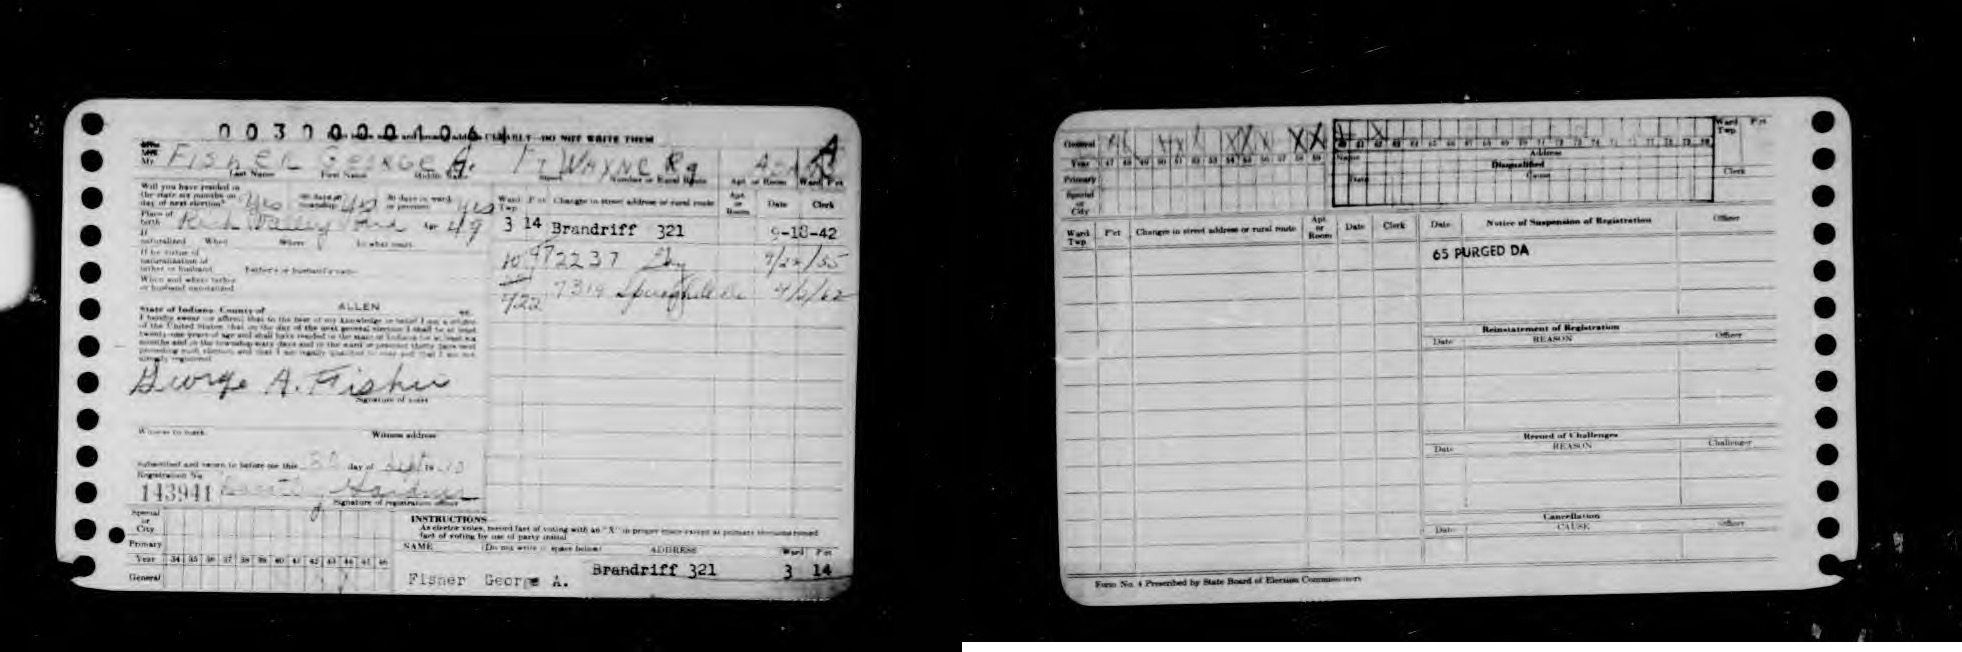 0030000106
CLEARLY—DO NOT WRITE THEM
Mr. FISHER GEORGE A. FT WAYNE
Last Name First Name Middle Name Street Number or Rural Route Apt. or Room Ward Pct
Will you have resided in
the state six months on
day of next election? Yes 60 days in township Yes 30 days in ward or precinct Yes
Place of birth Rich Valley Ind Age 49
If naturalized When Where In what court
If by virtue of
naturalization of
father or husband Father's or husband's name
When and where father
or husband naturalized
State of Indiana, County of ALLEN ss.
I hereby swear (or affirm) that to the best of my knowledge or belief I am a citizen
of the United States; that on the day of the next general election I shall be at least
twenty-one years of age and shall have resided in the state of Indiana for at least six
months and in the township sixty days and in the ward or precinct thirty days next
preceding such election; and that I am legally qualified to vote and that I am not
already registered
George A. Fisher
Signature of voter
Witness to mark Witness address
Subscribed and sworn to before me this 30 day of Sept 19
Registration No.
143941
Signature of registration officer
Ward Twp. Pct Changes in street address or rural route Apt. or Room Date Clerk
3 14 Brandriff 321 9-18-42
10 2237 /55
422 7319 Springhill 62
Special
or
City
Primary
Year 34 35 36 37 38 39 40 41 42 43 44 45 46
General
INSTRUCTIONS
As elector votes, record fact of voting with an "X" in proper space except at primary elections record
fact of voting by use of party initial
NAME (Do not write in space below) ADDRESS Ward Pct
Fisher George A. Brandriff 321 3 14
General
Year 47 48 49 50 51 52 53 54 55 56 57 58 59 60 61 62 63 64 65 66 67 68 69 70 71 72 73 74 75 76 77 78 79 80
Primary
Special
or
City
Ward Twp. Pct
Name Address
Disqualified
Date Cause Clerk
Ward Twp. Pct Changes in street address or rural route Apt. or Room Date Clerk
Date Notice of Suspension of Registration Officer
65 PURGED DA
Reinstatement of Registration
Date REASON Officer
Record of Challenges
Date REASON Challenger
Cancellation
Date CAUSE Officer
Form No. 4 Prescribed by State Board of Election Commissioners